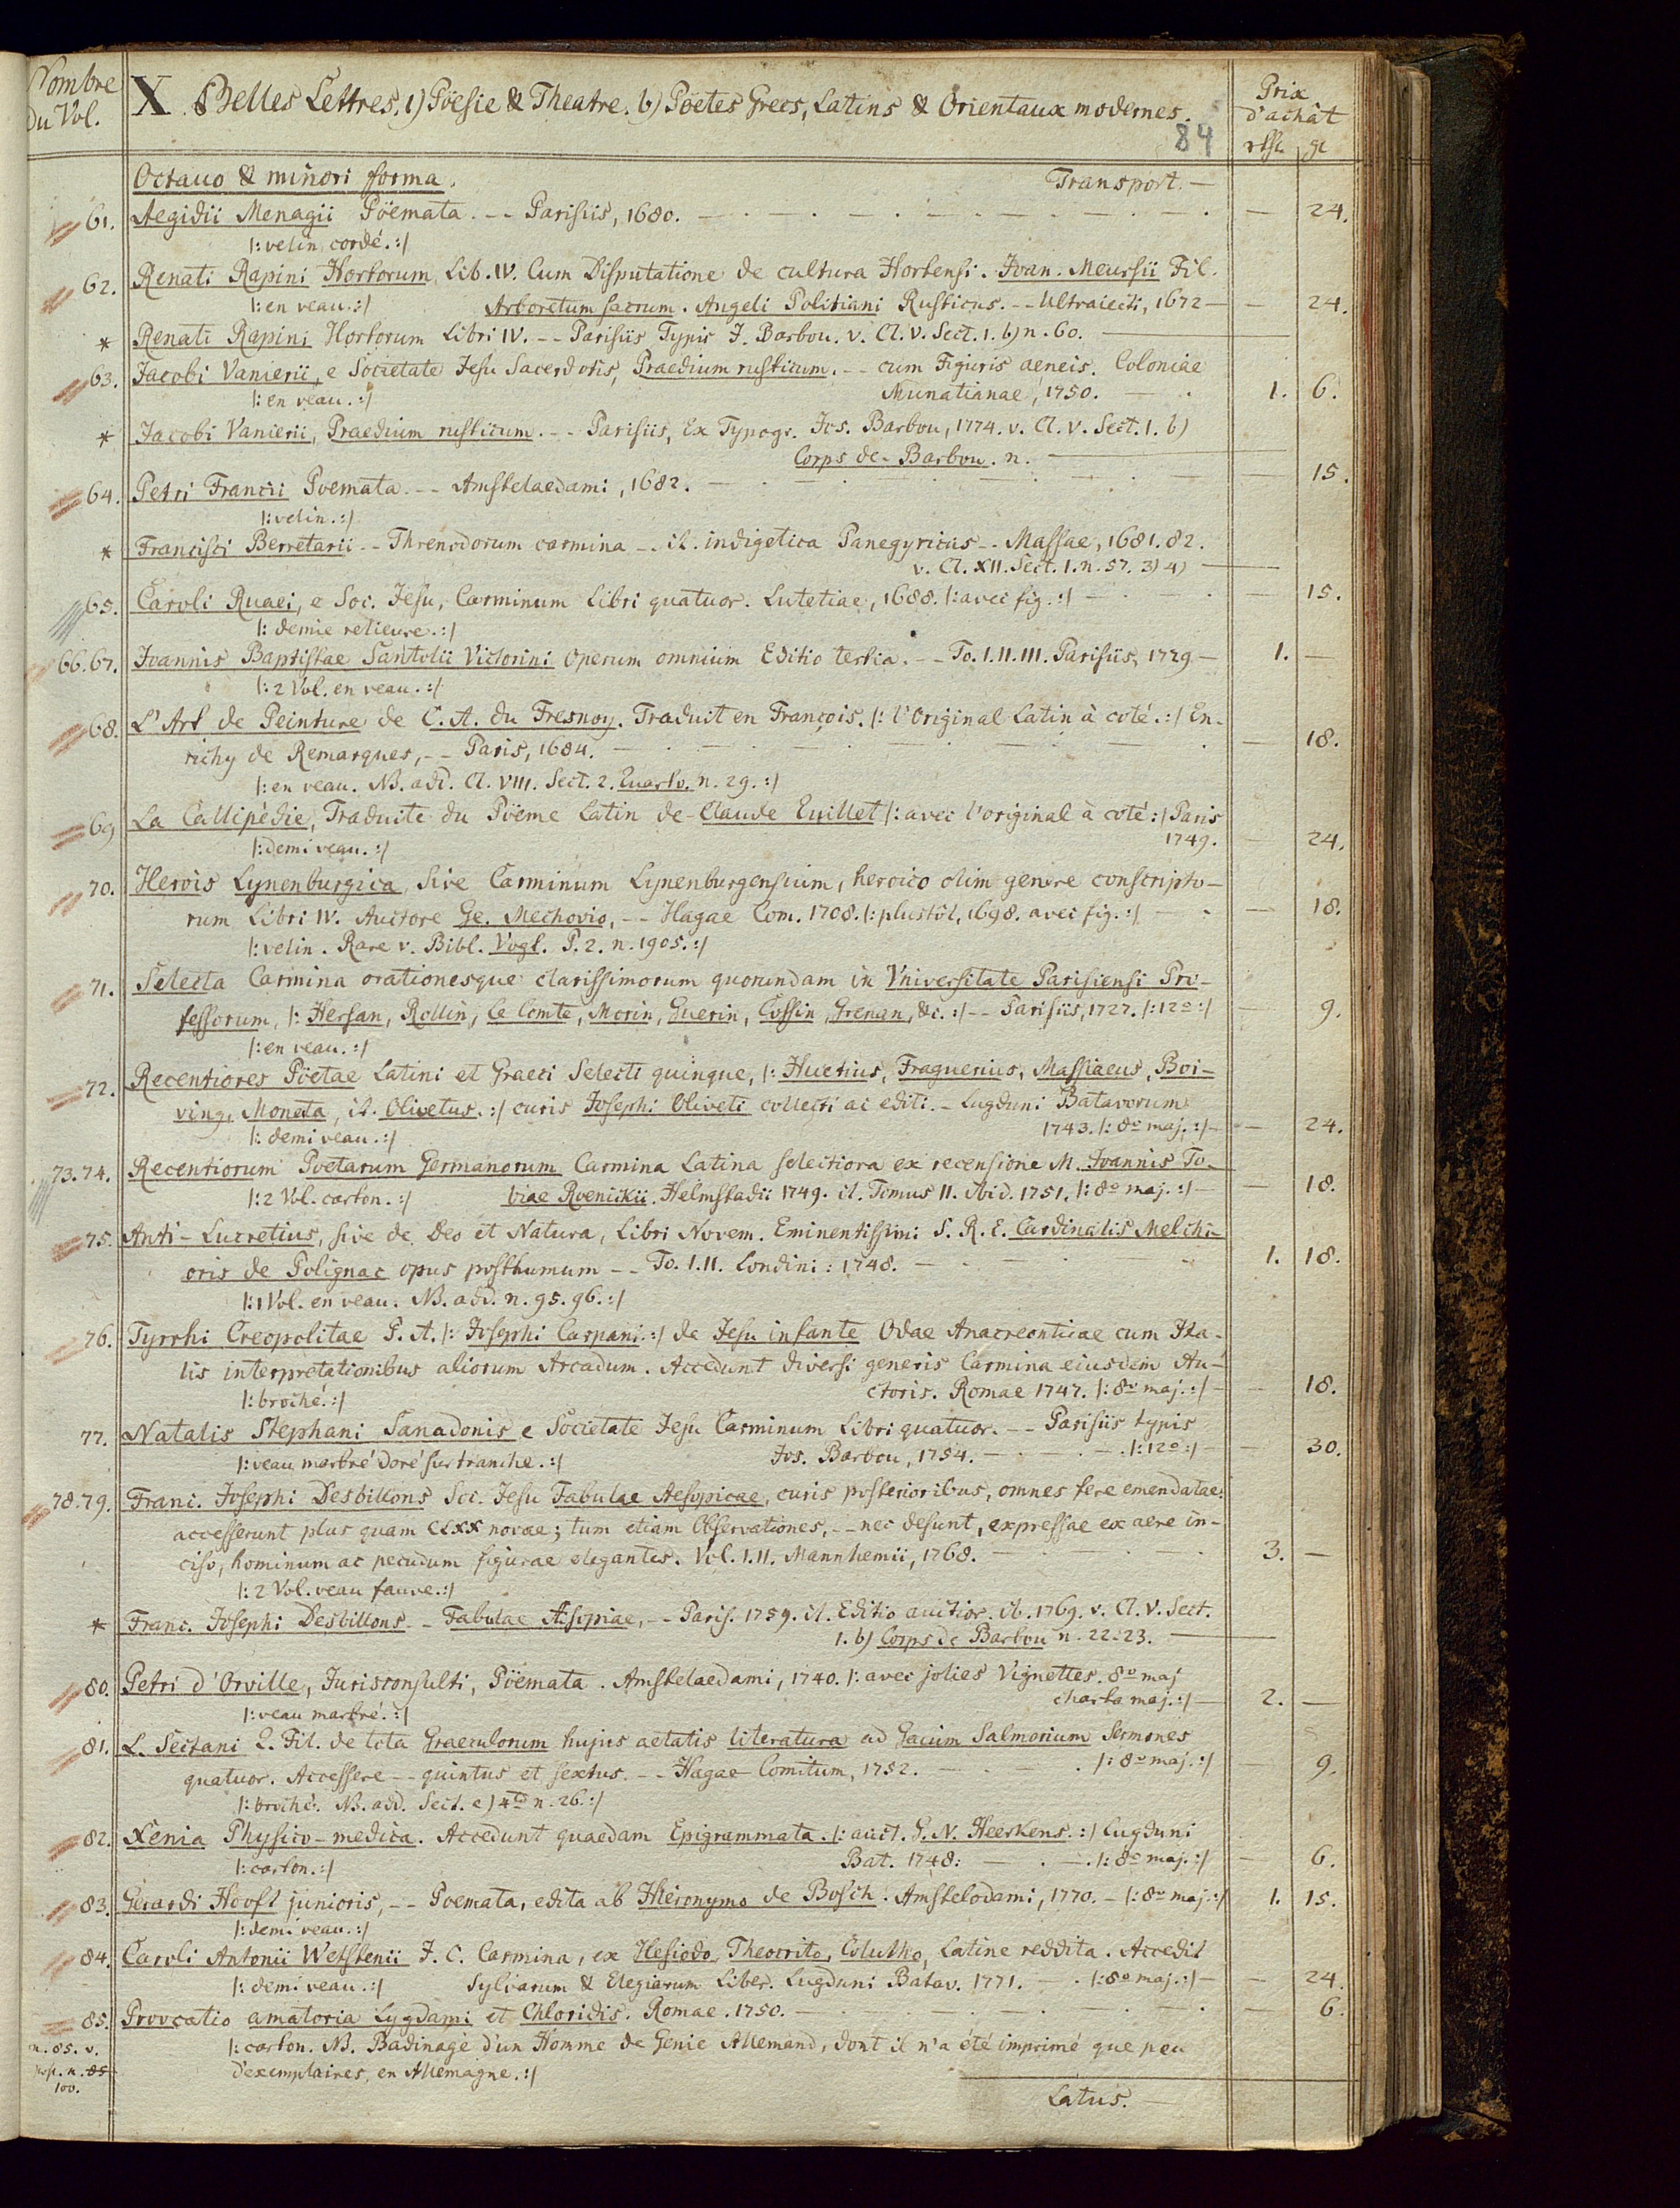 Nombre du Vol.
X. Belles Lettres. 1) Pöesie & Theatre. b) Pöetes Grecs, Latins & Orientaux modernes.
Prix d'achât
84
rthl. gr
Octauo & minori forma. Transport. —
61. Aegidii Menagii Pöemata. -- Parisiis, 1680. — 24.
|: velin cordé. :|
62. Renati Rapini Hortorum, Lib. IV. Cum Disputatione de cultura Hortensi. Ioan. Meursii Fil.
|: en veau. :| Arboretum sacrum. Angeli Politiani Rusticus. -- Ultraiecti, 1672 — 24.
* Renati Rapini Hortorum Libri IV. -- Parisiis Typis J. Barbou. v. Cl. V. Sect. 1. b) n. 60.
63. Jacobi Vanierii, e Societate Jesu Sacerdotis, Praedium rusticum. -- cum Figuris aeneis. Coloniae
|: en veau. :| Munatianae, 1750. — 1. 6.
* Jacobi Vanierii, Praedium rusticum. -- Parisiis, Ex Typogr. Jos. Barbou, 1774. v. Cl. V. Sect. 1. b)
Corps de Barbou. n.
64. Petri Francii Poemata. -- Amstelaedami, 1682. — 15.
|: velin. :|
* Francisci Berretarii -- Threnodorum carmina -- it. indigetica Panegyricus -- Massae, 1681. 82.
v. Cl. XII. Sect. 1. n. 57. 3) 4)
65. Caroli Ruaei, e Soc. Jesu, Carminum Libri quatuor. Lutetiae, 1688. |: avec fig. :| — 15.
|: demie relieure. :|
66. 67. Ioannis Baptistae Santolii Victorini Operum omnium Editio tertia. -- To. I. II. III. Parisiis, 1729 — 1. —
|: 2 Vol. en veau. :|
68. L'Art de Peinture de C. A. du Fresnoy. Traduit en François. |: l'Original Latin à coté. :| En-
richy de Remarques, -- Paris, 1684. — 18.
|: en veau. NB. add. Cl. VIII. Sect. 2. Quarto. n. 29. :|
69 La Callipédie, Traduite du Pöeme Latin de Claude Quillet |: avec l'original à coté :| Paris
|: demi veau. :| 1749. — 24.
70. Herois Lynenburgica, Sive Carminum Lynenburgensium, heroico olim genere conscripto-
rum Libri IV. Auctore Ge. Mechovio, -- Hagae Com. 1708. |: plustôt, 1698. avec fig. :| — 18.
|: velin. Rare v. Bibl. Vogt. P. 2. n. 1905. :|
71. Selecta Carmina orationesque clarissimorum quorundam in Vniversitate Parisiensi Pro-
fessorum, |: Hersan, Rollin, le Comte, Morin, Guerin, Coffin, Grenan, &c. :| -- Parisiis, 1727. |: 12º :| — 9.
|: en veau. :|
72. Recentiores Pöetae Latini et Graeci Selecti quinque, |: Huetius, Fraguerius, Massiaeus, Boi-
ving, Moneta, it. Olivetus. :| curis Josephi Oliveti collecti ac editi. -- Lugduni Batavorum
|: demi veau. :| 1743. |: 8º maj. :| — 24.
73. 74. Recentiorum Poetarum Germanorum Carmina Latina selectiora ex recensione M. Ioannis To-
|: 2 Vol. carton. :| biae Roenickii. Helmstadii 1749. it. Tomus II. ibid. 1751. |: 8º maj. :| — 18.
75. Anti-Lucretius, sive de Deo et Natura, Libri Novem. Eminentissimi S. R. E. Cardinalis Melchi-
oris de Polignac opus posthumum -- To. I. II. Londini: 1748. — 1. 18.
|: 1 Vol. en veau. NB. add. n. 95. 96. :|
76. Tyrrhi Creopolitae P. A. |: Josephi Carpani. :| de Jesu infante Odae Anacreonticae cum Ita-
lis interpretationibus aliorum Arcadum. Accedunt diversi generis Carmina eiusdem Au-
|: broché. :| ctoris. Romae 1747. |: 8º maj. :| — 18.
77. Natalis Stephani Sanadonis e Societate Jesu Carminum Libri quatuor. -- Parisiis typis
|: veau marbré doré sur tranche. :| Jos. Barbou, 1754. — |: 12º :| — 30.
78. 79. Franc. Josephi Desbillons Soc. Jesu Fabulae Aesopicae, curis posterioribus, omnes fere emendatae:
accesserunt plus quam CLXX novae; tum etiam Observationes, -- nec desunt, expressae ex aere in-
ciso, hominum ac pecudum figurae elegantes. Vol. I. II. Mannhemii, 1768. — 3. —
|: 2 Vol. veau fauve. :|
* Franc. Josephi Desbillons -- Fabulae Aesopiae, -- Paris. 1759. it. Editio auctior. ib. 1769. v. Cl. V. Sect.
1. b) Corps de Barbou n. 22-23.
80. Petri d'Orville, Jurisconsulti, Pöemata. Amstelaedami, 1740. |: avec jolies Vignettes. 8º maj
|: veau marbré. :| charta maj. :| — 2. —
81. L. Sectani Q. Fil. de tota Graeculorum hujus aetatis literatura ad Gacum Salmorium Sermones
quatuor. Accessere -- quintus et sextus. -- Hagae Comitum, 1752. — |: 8º maj. :| — 9.
|: broché. NB. add. Sect. e) 4to n. 26. :|
82. Xenia Physico-medica. Accedunt quaedam Epigrammata. |: auct. G. N. Heerkens. :| Lugduni
|: carton. :| Bat. 1748: — |: 8º maj. :| — 6.
83. Gerardi Hooft junioris, -- Poemata, edita ab Hieronymo de Bosch. Amstelodami, 1770. — |: 8º maj. :| 1. 15.
|: demi veau. :|
84. Caroli Antonii Wetstenii J. C. Carmina, ex Hesiodo, Theocrito, Colutho, Latine reddita. Accedit
|: demi veau. :| Sylvarum & Elegiarum Liber. Lugduni Batav. 1771. — |: 8º maj. :| — 24.
85. Provocatio amatoria Lygdami et Chloridis. Romae. 1750. — 6.
n. 85. v. |: carton. NB. Badinage d'un Homme de Genie Allemand, dont il n'a été imprimé que peu
post. n. 85 d'exemplaires, en Allemagne. :|
100.
Latus. —